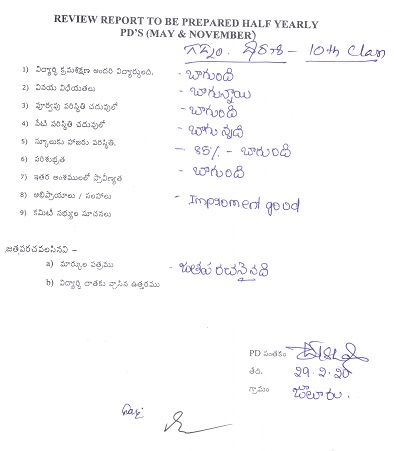 REVIEW REPORT TO BE PREPARED HALF YEARLY
PD'S (MAY & NOVEMBER)
గడ్డం. - 10th Class
1) విద్యార్థి క్రమశిక్షణ అందరి విద్యార్థులది. - బాగుంది
2) వినయ విధేయతలు - బాగున్నాయి
3) పూర్వపు పరిస్థితి చదువులో - బాగుంది
4) నేటి పరిస్థితి చదువులో - బాగున్నది
5) స్కూలుకు హాజరు పరిస్థితి. - 85% - బాగుంది
6) పరిశుభ్రత - బాగుంది
7) ఇతర అంశములలో ప్రావీణ్యత - బాగుంది
8) అభిప్రాయాలు / సలహాలు - Improment good
9) కమిటి సభ్యుల సూచనలు
జతపరచవలసినవి –
a) మార్కుల పత్రము - జతపరచనైనది
b) విద్యార్థి దాతకు వ్రాసిన ఉత్తరము
PD సంతకం
తేది. 29.2.20
గ్రామం. జూలూరు.